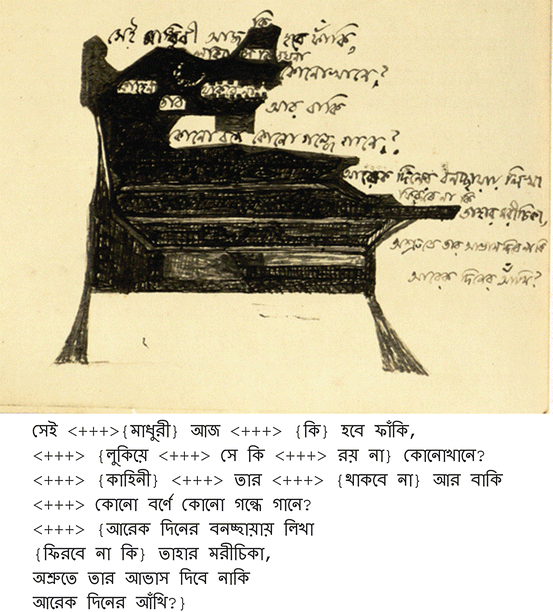 সেই মাধুরী আজ কি হবে ফাঁকি,
কোনোখানে?
তার আর বাকি
কোনো বর্ণে কোনো গন্ধে গানে?
আরেক দিনের বনচ্ছায়ায় লিখা
ফিরবে না কি
তাহার মরীচিকা,
অশ্রুতে তার আভাস দিবে নাকি
আরেক দিনের আঁখি?
সেই <+++>{মাধুরী} আজ <+++> {কি} হবে ফাঁকি,
<+++> {লুকিয়ে <+++> সে কি <+++> রয় না} কোনোখানে?
<+++> {কাহিনী} <+++> তার <+++> {থাকবে না} আর বাকি
<+++> কোনো বর্ণে কোনো গন্ধে গানে?
<+++> {আরেক দিনের বনচ্ছায়ায় লিখা
{ফিরবে না কি} তাহার মরীচিকা,
অশ্রুতে তার আভাস দিবে নাকি
আরেক দিনের আঁখি?}